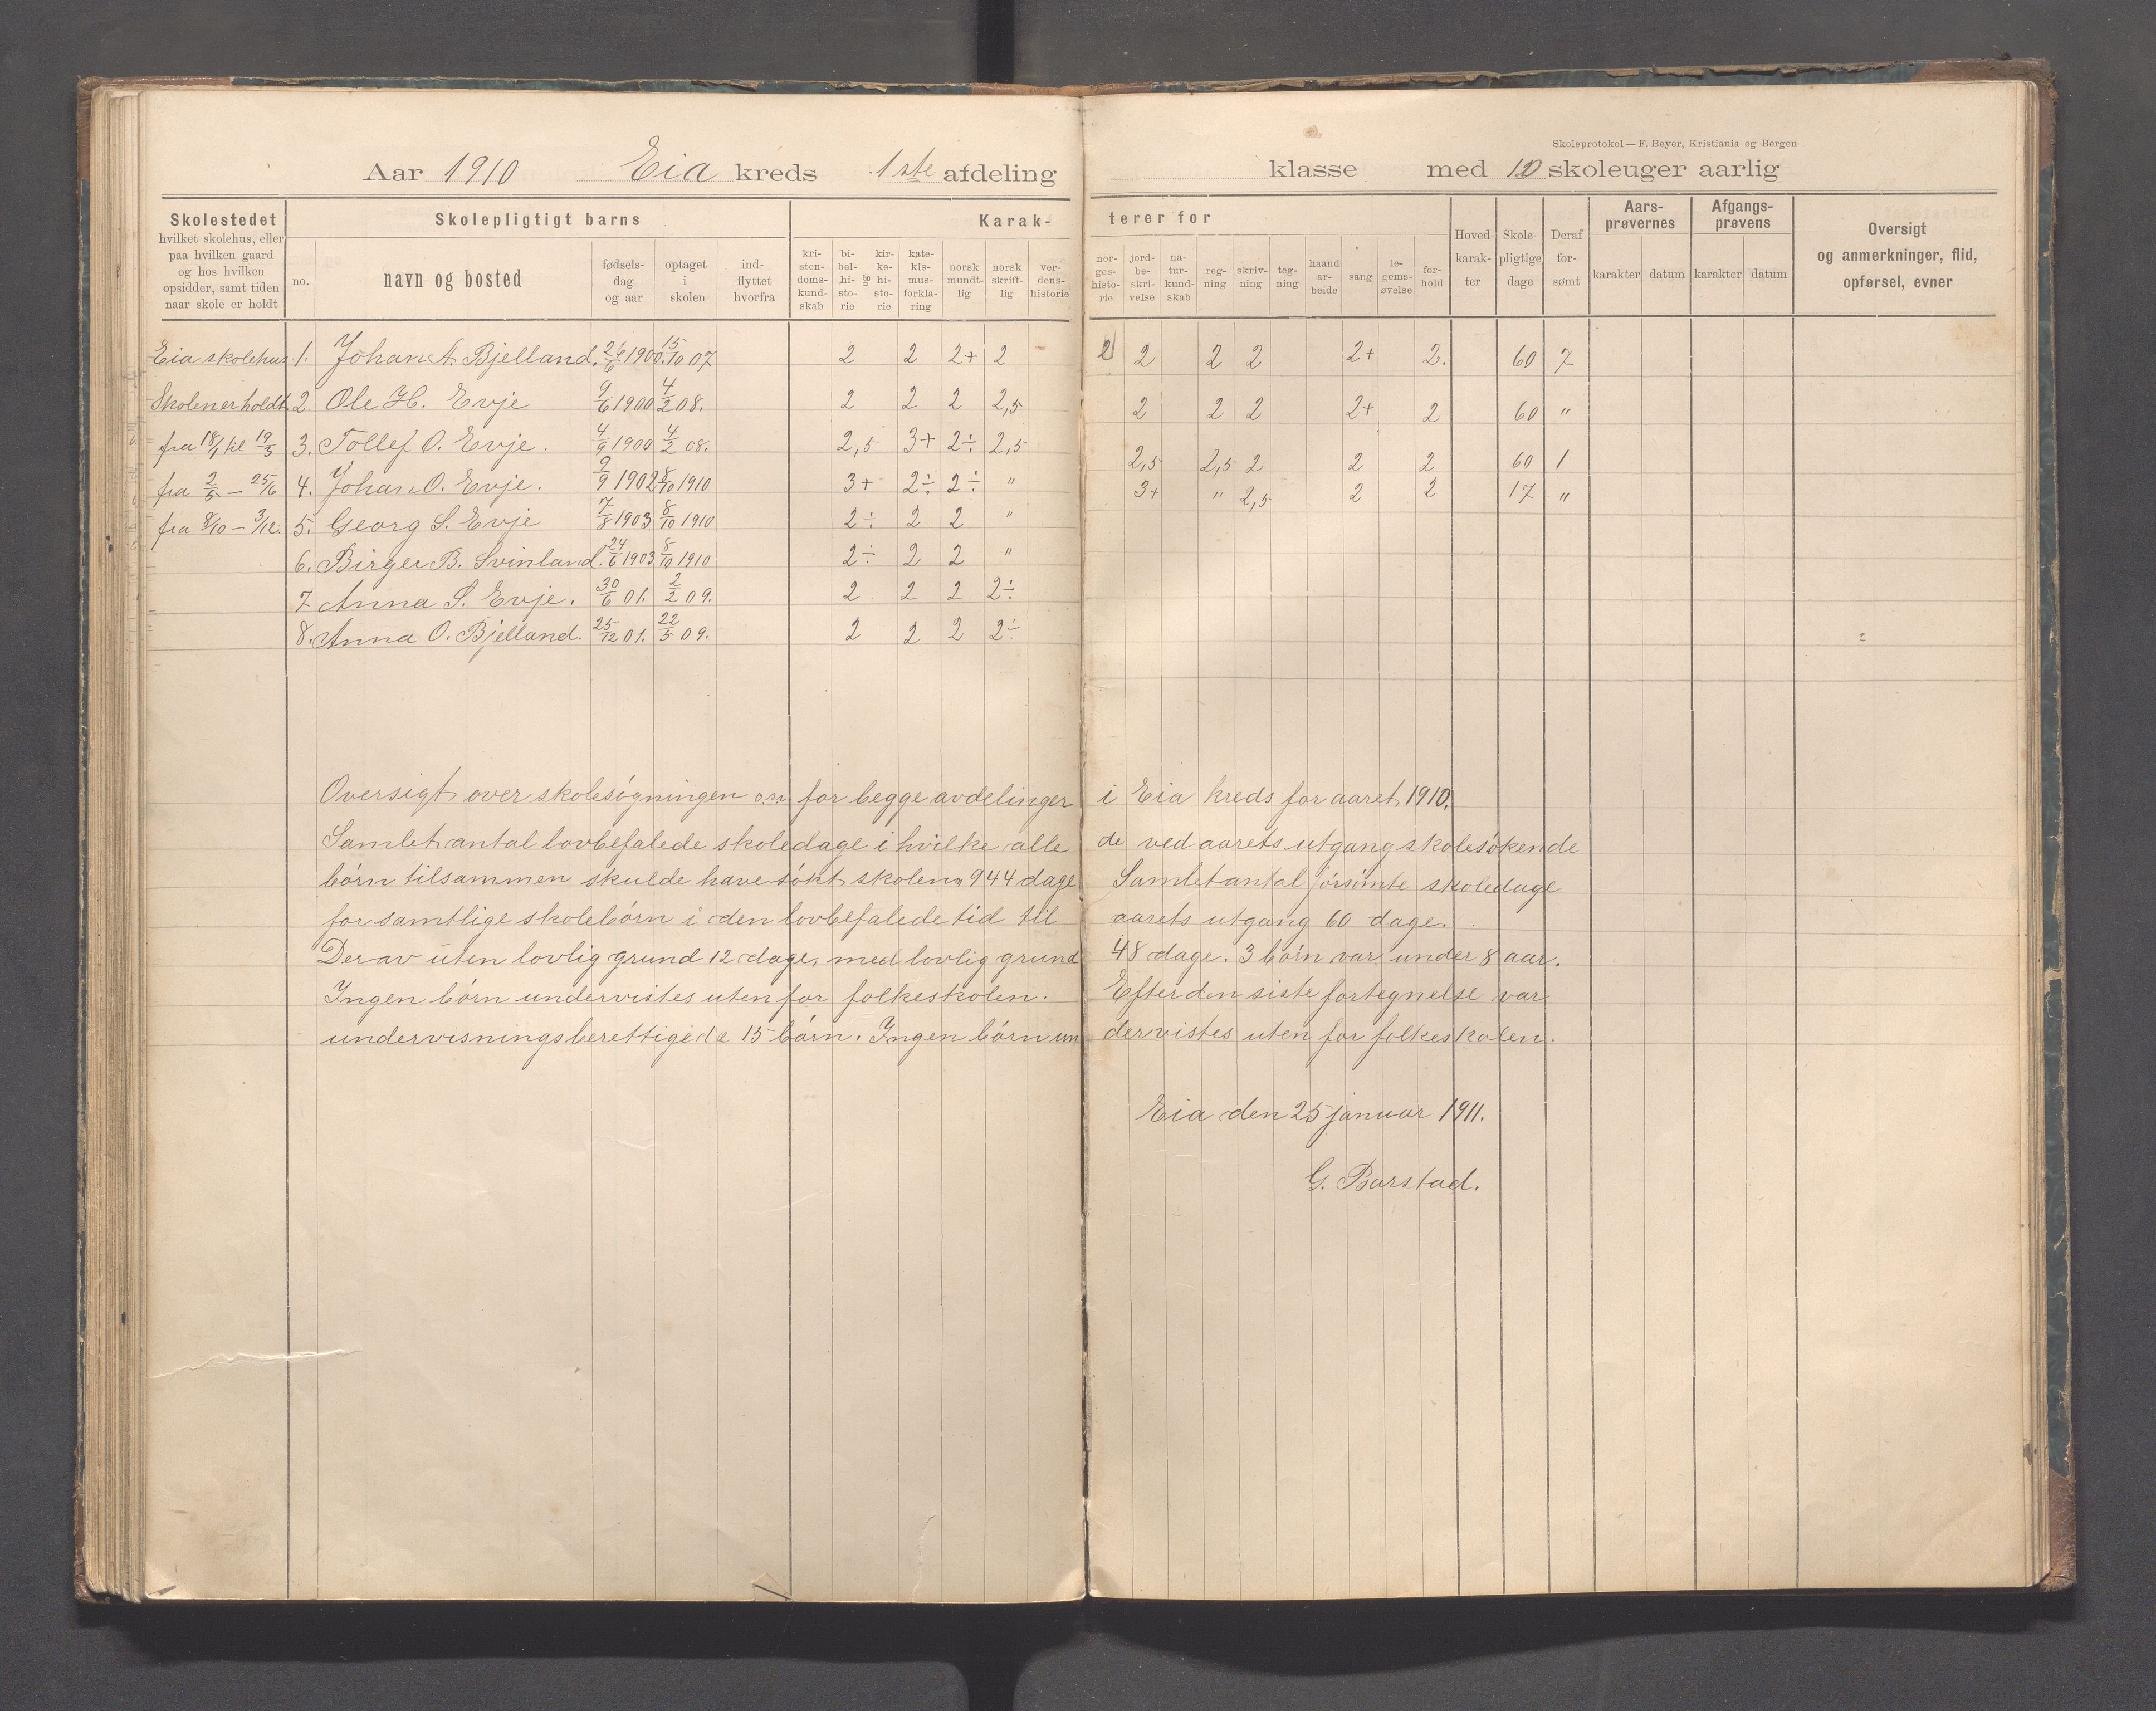 Skoleprotokol — F. Beyer, Kristiania og Bergen
Aar 1910 Eia kreds 1ste afdeling klasse med 10 skoleuger aarlig
Skolestedet
hvilket skolehus, eller paa hvilken gaard og hos hvilken opsidder, samt tiden naar skole er holdt
Skolepligtigt barns
no.
navn og bosted
fødsels-dag og aar
optaget i skolen
ind-flyttet hvorfra
Karak-terer for
kri-sten-doms-kund-skab
bi-bel-hi-sto-rie
og
kir-ke-hi-sto-rie
kate-kis-mus-forkla-ring
norsk mundt-lig
norsk skrift-lig
ver-dens-historie
nor-ges-histo-rie
jord-be-skri-velse
na-tur-kund-skab
reg-ning
skriv-ning
teg-ning
haand ar-beide
sang
le-gems-øvelse
for-hold
Hoved-karak-ter
Skole-pligtige dage
Deraf for-sømt
Aars-prøvernes
karakter datum
Afgangs-prøvens
karakter datum
Oversigt og anmerkninger, flid, opførsel, evner
Eia skolehus 1. Johan A. Bjelland. 26/6 1900. 15/10 07 2 2 2+ 2 2 2 2 2 2+ 2. 60 7
Skolen er holdt 2. Ole H. Evje 9/6 1900 4/2 08. 2 2 2 2,5 2 2 2 2+ 2 60 "
fra 18/1 til 19/3 3. Tollef O. Evje. 4/9 1900 4/2 08. 2,5 3+ 2÷ 2,5 2,5 2,5 2 2 2 60 1
fra 2/5 — 25/6 4. Johan O. Evje. 9/9 1902 8/10 1910 3+ 2÷ 2÷ " 3+ " 2,5 2 2 17 "
fra 8/10 — 3/12. 5. Georg S. Evje 7/8 1903 8/10 1910 2÷ 2 2 "
6. Birger B. Svinland. 24/6 1903 8/10 1910 2÷ 2 2 "
7 Anna S. Evje. 30/6 01. 2/2 09. 2 2 2 2÷
8. Anna O. Bjelland. 25/12 01. 22/5 09. 2 2 2 2÷
Oversigt over skolesøgningen o.s.v. for begge avdelinger i Eia kreds for aaret 1910.
Samlet antal lovbefalede skoledage i hvilke alle de ved aarets utgang skolesøkende
børn tilsammen skulde have søkt skolen 944 dage Samlet antal forsømte skoledage
for samtlige skolebørn i den lovbefalede tid til aarets utgang 60 dage.
Derav uten lovlig grund 12 dage, med lovlig grund 48 dage. 3 børn var under 8 aar.
Ingen børn undervistes uten for folkeskolen. Efter den siste fortegnelse var
undervisningsberettigede 15 børn. Ingen børn undervistes uten for folkeskolen.
Eia den 25 januar 1911.
G. Barstad.